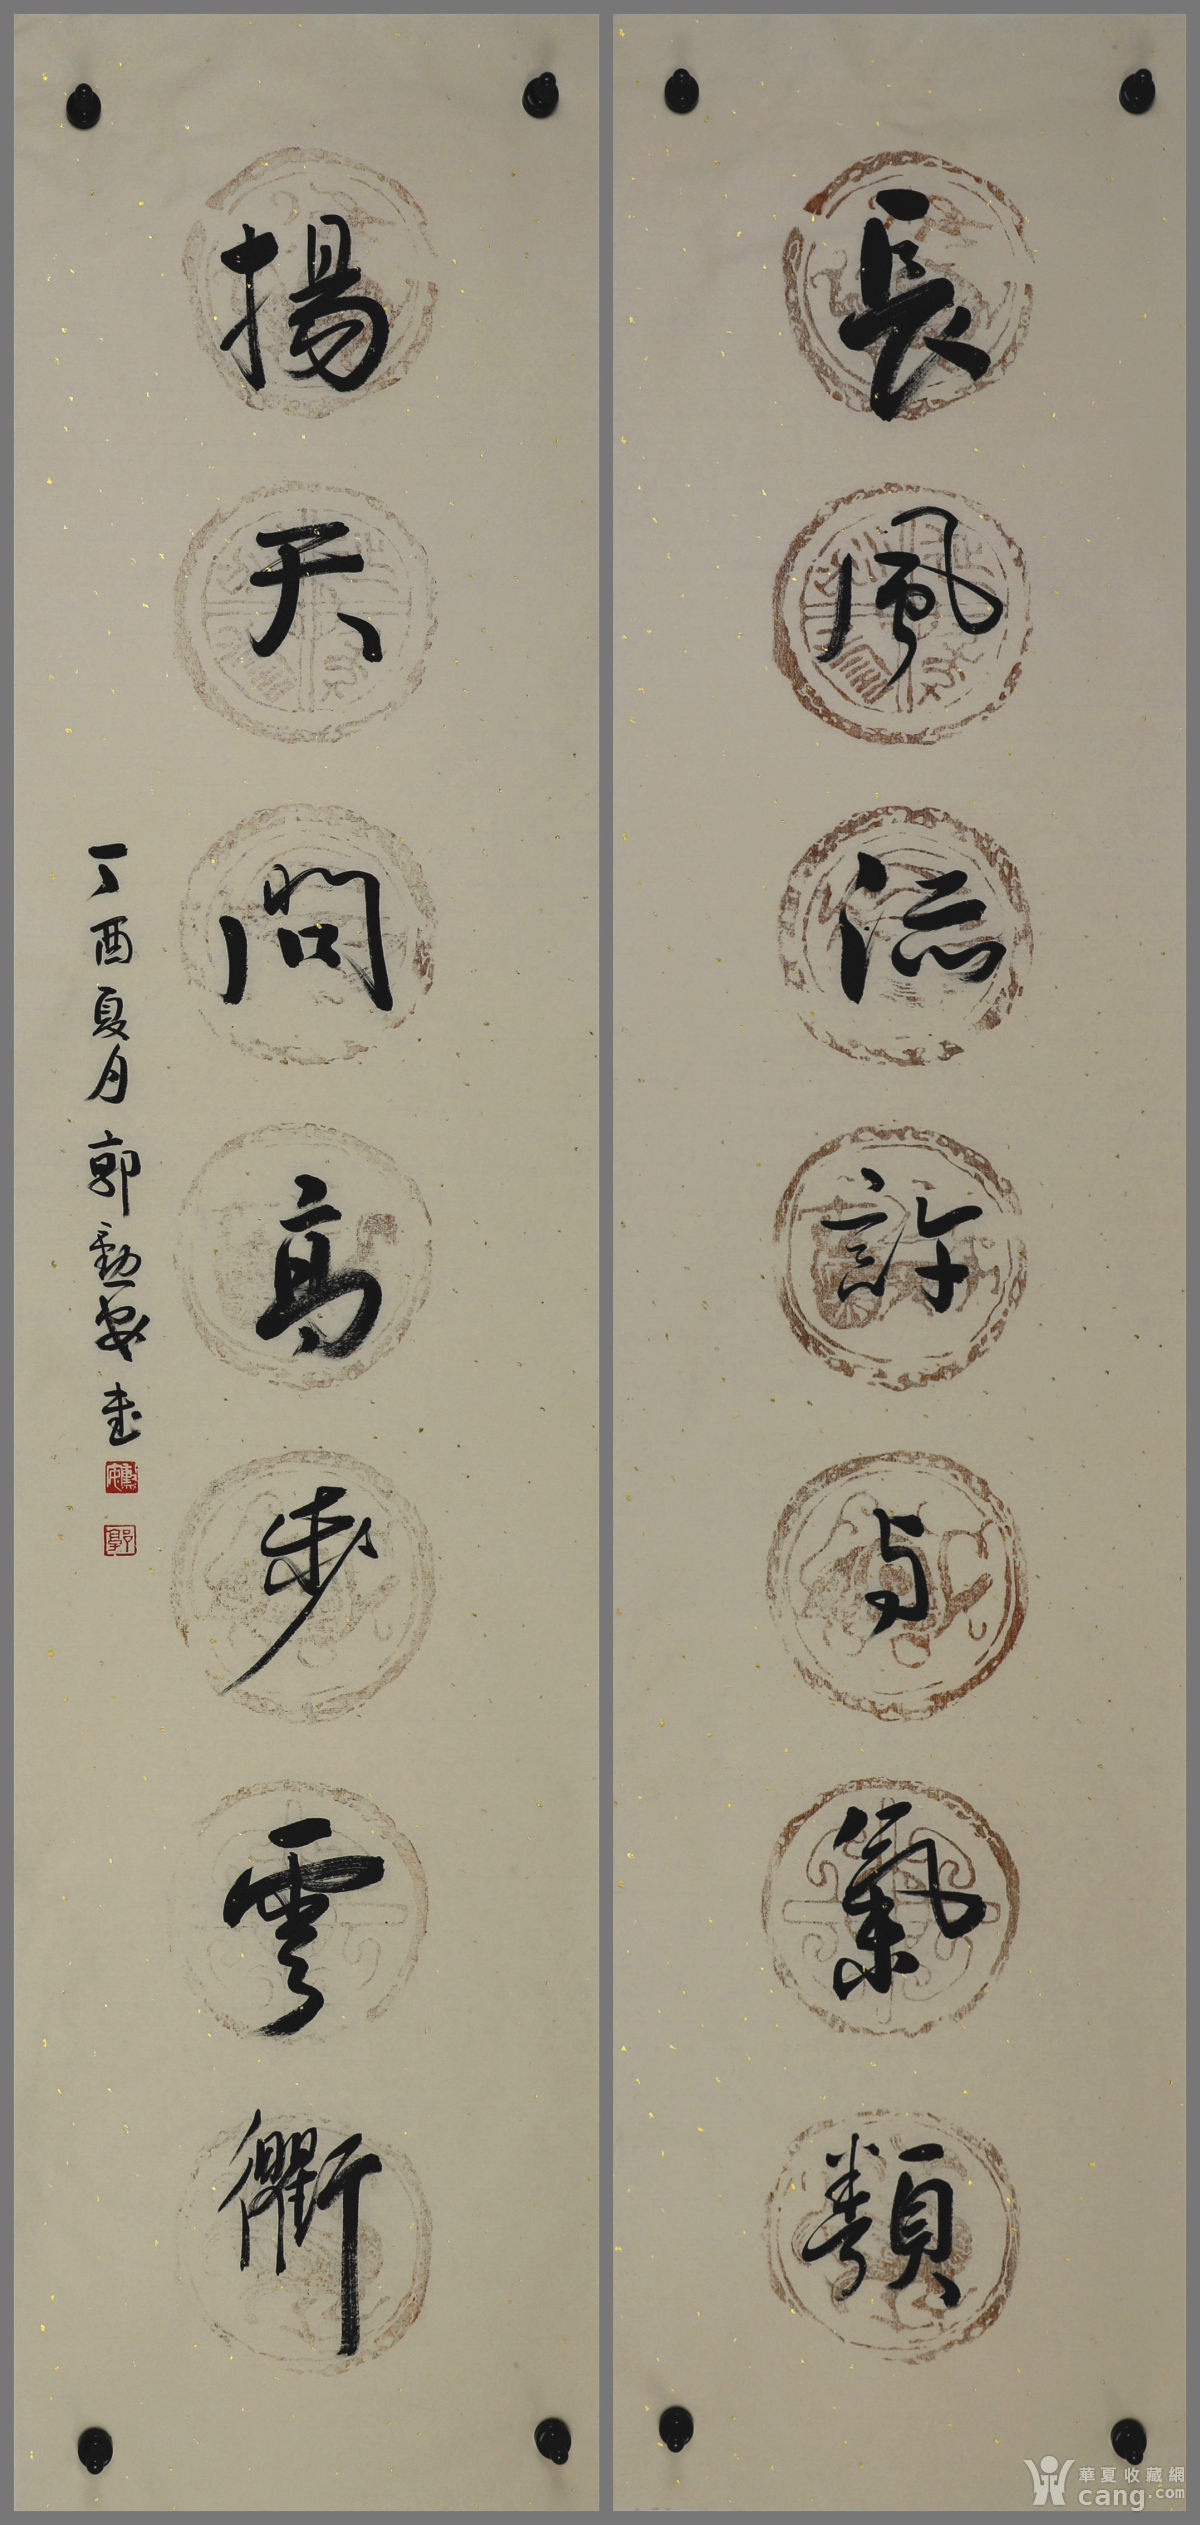 長風流許与氣類
揚天問高步雲衢
丁酉夏月郭勲安書
勳安
郭
華夏收藏網
cang.com